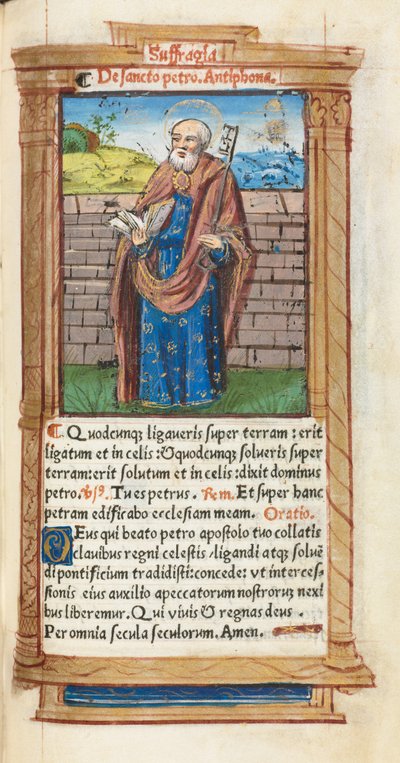 Suffragia
De sancto petro. Antiphona.
Quodcunqꝫ ligaveris super terram : erit
ligatum et in celis : & quodcunque solueris super
terram : erit solutum et in celis : dixit dominus
petro. Vs. Tu es petrus . Rem. Et super hanc
petram edificabo ecclesiam meam. Oratio.
Deus qui beato petro apostolo tuo collatis
clavibus regni celestis / ligandi atqꝫ solvē
di pontificium tradidisti: concede : vt interces-
sionis eius auxilio a peccatorum nostroruꝫ nexi
bus liberemur. Qui vivis & regnas deus .
Per omnia secula seculorum. Amen.